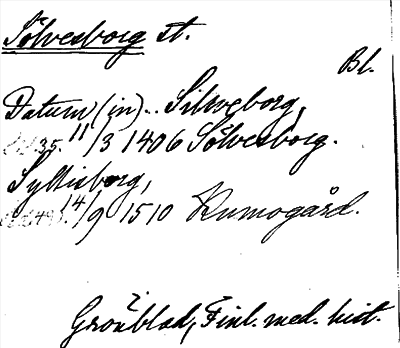 Sölvesborg st.
Bl.
Datum (in).. Silweborg,
35. 11/3 1406 Sölvesborg.
Syltisborg,
14/9 1510 Rumogård.
Grönblad, Finl. med. hist.